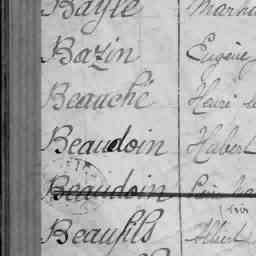 Bayle
Bazin Eugène
Beauché Henri
Beaudoin Hubert
Beaudoin
Beaufils Albert